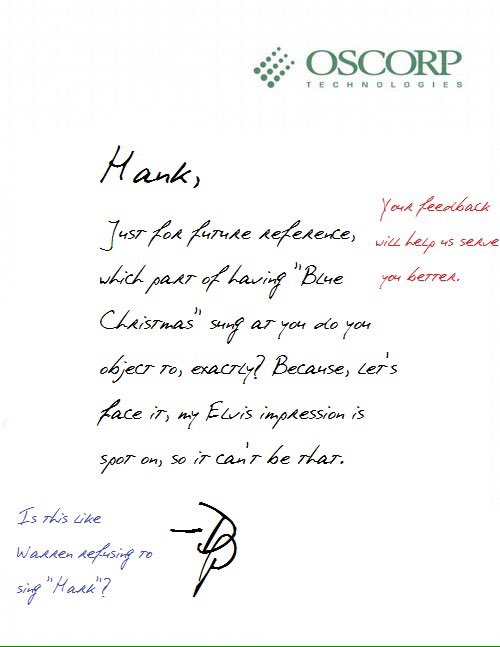 OSCORP
TECHNOLOGIES
Hank,
Just for future reference,
which part of having "Blue
Christmas" sung at you do you
object to, exactly? Because, let's
face it, my Elvis impression is
spot on, so it can't be that.
Your feedback
will help us serve
you better.
Is this like
Warren refusing to
sing "Hark"?